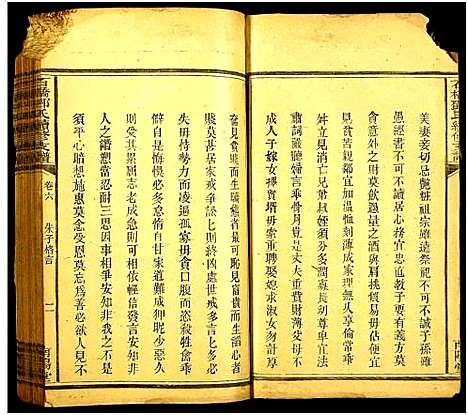 美妻妾切忌艷粧祖宗雖遠祭祀不可不誠子孫雖
愚經書不可不讀居身務期質樸教子要有義方莫
貪意外之財莫飲過量之酒與肩挑貿易毋佔便宜
見貧苦親鄰宜加溫恤刻薄成家理無久享倫常乖
舛立見消亡兄弟叔姪須分多潤寡長幼尊卑宜法
肅詞嚴聽婦言乖骨肉豈是丈夫重貲財薄父母不
成人子嫁女擇賢壻毋索重聘娶媳求淑女勿計厚
奩見富貴而生驕態者最可恥見貧窮而生諂心者
賤莫甚居家戒爭訟訟則終凶處世戒多言言多必
失毋恃勢力而凌逼孤寡毋貪口腹而恣殺牲禽乖
僻自是悔悞必多怠惰自甘家道難成狎昵惡少久
必受其累屈志老成急則可相依輕信發言安知非
人之譖愬當忍耐三思因事相爭安知非我之不是
須平心暗想施惠莫念受恩莫忘為善必欲人見不
石橋鄧氏續修支譜
卷六
朱子格言
南陽堂